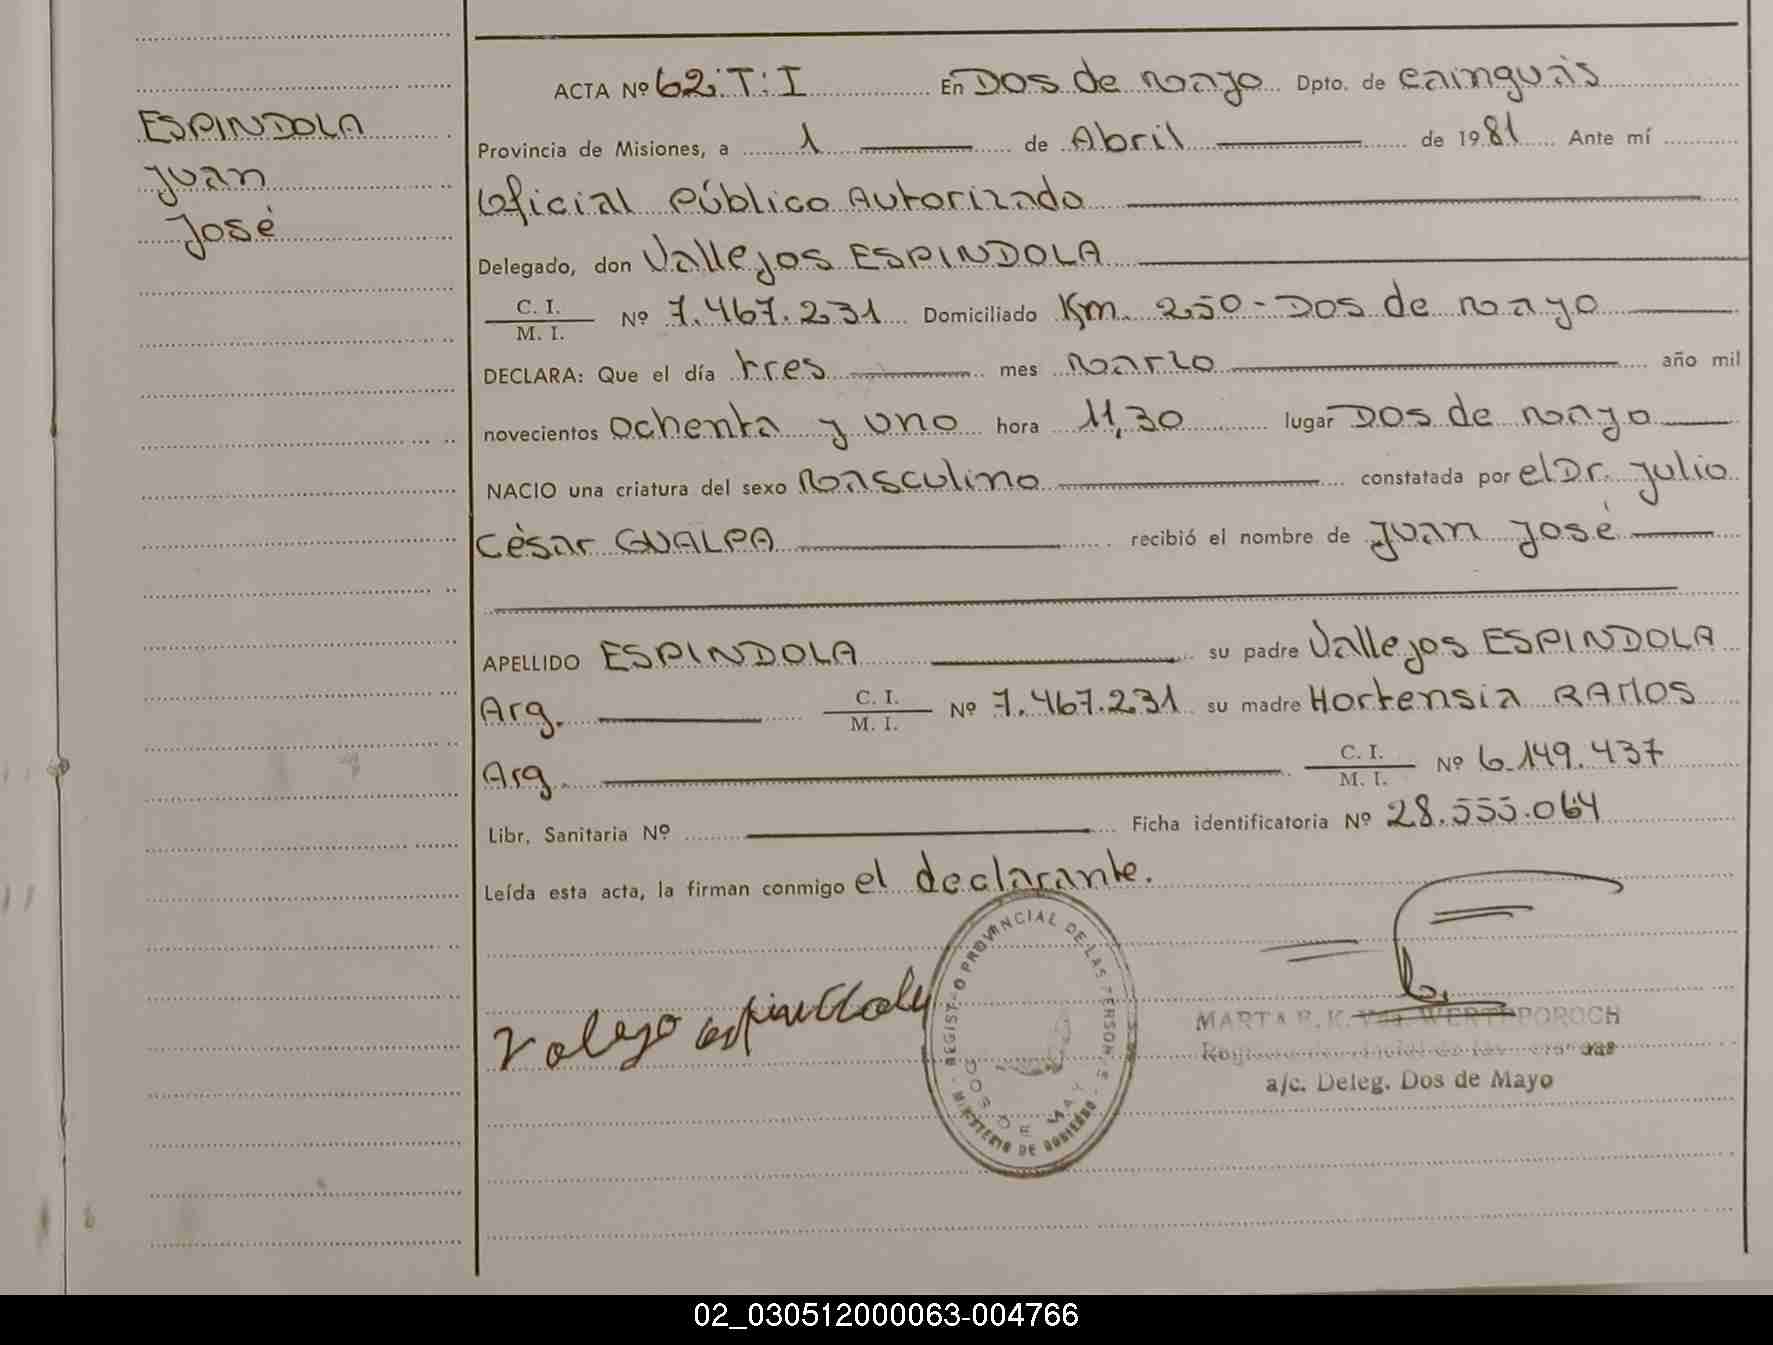 ESPINDOLA
Juan
José
ACTA Nº 62: T: I En Dos de Mayo Dpto. de Cainguás
Provincia de Misiones, a 1 de Abril de 1981 Ante mí
Oficial Público Autorizado
Delegado, don Vallejos ESPINDOLA
C. I.
M. I. Nº 7.467.231 Domiciliado Km. 250 - Dos de Mayo
DECLARA: Que el día tres mes Marzo año mil
novecientos ochenta y uno hora 11,30 lugar Dos de Mayo
NACIO una criatura del sexo Masculino constatada por el Dr. Julio
César GUALPA recibió el nombre de Juan José
APELLIDO ESPINDOLA su padre Vallejos ESPINDOLA
Arg. C. I.
M. I. Nº 7.467.231 su madre Hortensia RAMOS
Arg. C. I.
M. I. Nº 6.149.437
Libr, Sanitaria Nº Ficha identificatoria Nº 28.555.064
Leída esta acta, la firman conmigo el declarante.
REGISTRO PROVINCIAL DE LAS PERSONAS
MINISTERIO DE GOBIERNO
DOS DE MAYO
MARTA
a/c. Deleg. Dos de Mayo
02_030512000063-004766